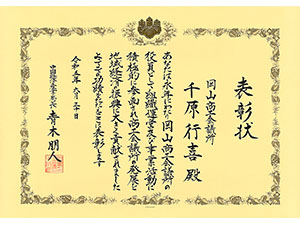 表彰状
岡山商工会議所
千原行喜 殿
あなたは永年にわたり岡山商工会議所の
役員として組織運営及び事業活動に
積極的に参画され商工会議所の発展と
地域経済の振興に大きく貢献されました
よってその功績をたたえここに表彰します
令和五年 六月二十日
青木朋人